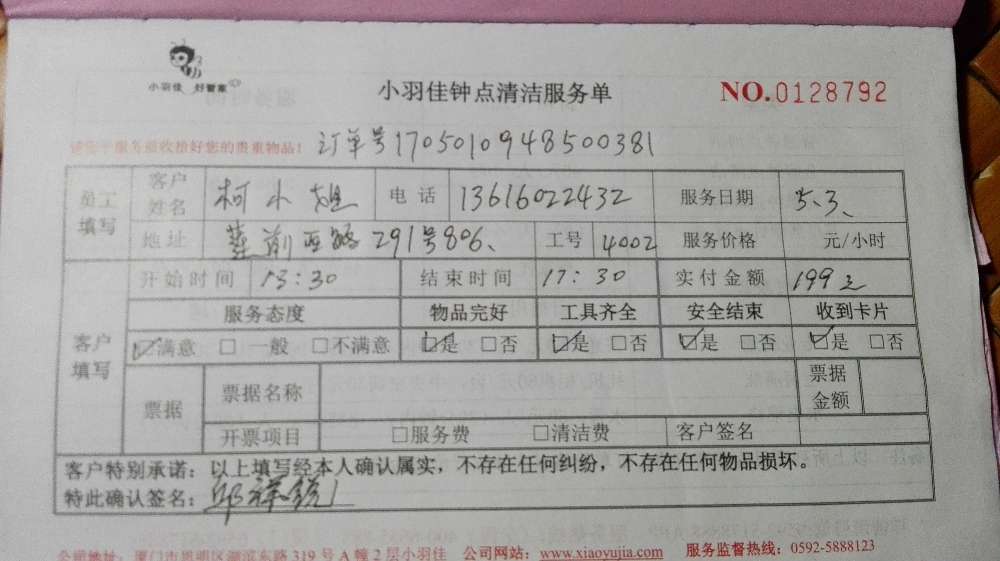 小羽佳 好管家
小羽佳钟点清洁服务单
NO.0128792
服务 收捡好您的贵重物品！
订单号170501094850 0381
员工填写
客户姓名 柯小姐 电话 13616022432 服务日期 5.3、
地址 前西路291号806、 工号 4002 服务价格 元/小时
客户填写
开始时间 13:30 结束时间 17:30 实付金额 199元
服务态度 物品完好 工具齐全 安全结束 收到卡片
☑满意 □ 一般 □不满意 ☑是 □否 ☑是 □否 ☑是 □否 ☑是 □否
票据 票据名称 票据金额
开票项目 □服务费 □清洁费 客户签名
客户特别承诺：以上填写经本人确认属实，不存在任何纠纷，不存在任何物品损坏。
特此确认签名：邱
公司地址：厦门市思明区湖滨东路 319 号 A 幢 2 层小羽佳 公司网站：www.xiaoyujia.com 服务监督热线：0592-5888123